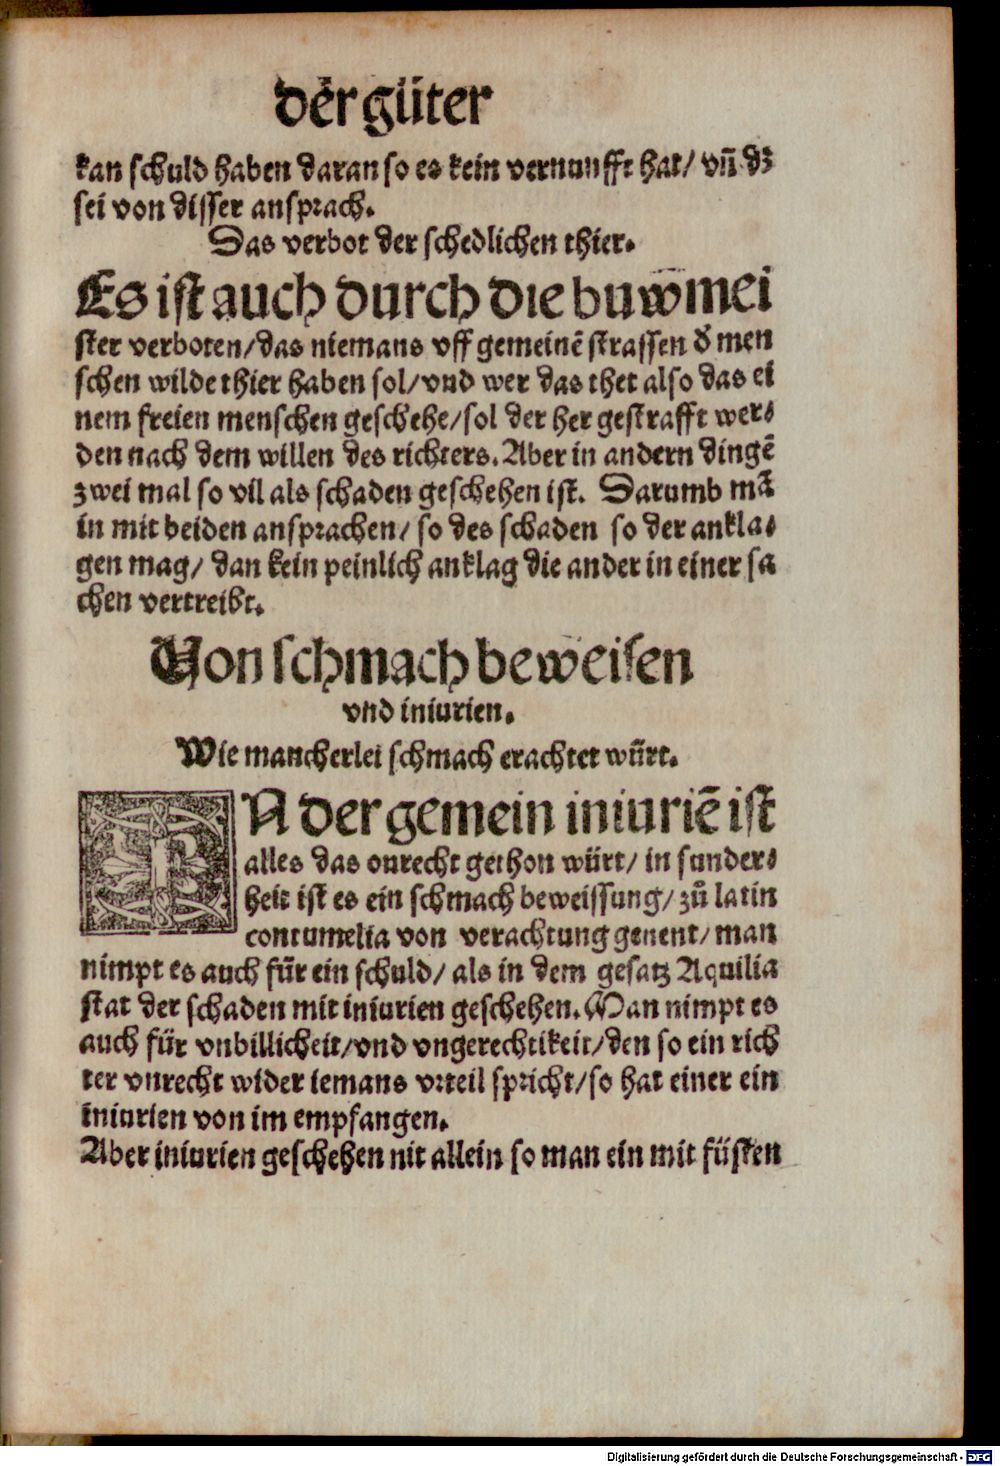 der güter
kan schuld haben daran so es kein vernunfft hat/ vñ dz
sei von disser ansprach.
Das verbot der schedlichen thier.
Es ist auch durch die buwmei
ster verboten/das niemans vff gemeinē strassen d̕ men
schen wilde thier haben sol/vnd wer das thet also das ei
nem freien menschen geschehe/sol der her gestrafft wer⸗
den nach dem willen des richters. Aber in andern dingē
zwei mal so vil als schaden geschehen ist. Darumb mā
in mit beiden ansprachen/ so des schaden so der ankla⸗
gen mag/ dan kein peinlich anklag die ander in einer sa
chen vertreibt.
Von schmach beweisen
vnd iniurien.
Wie mancherlei schmach erachtet würt.
IN der gemein iniuriē ist
alles das onrecht gethon würt/ in sunder⸗
heit ist es ein schmach beweissung/ zů latin
contumelia von verachtung genent/ man
nimpt es auch für ein schuld/ als in dem gesatz Aquilia
stat der schaden mit iniurien geschehen. Man nimpt es
auch für vnbillicheit/vnd vngerechtikeit/den so ein rich
ter vnrecht wider iemans vrteil spricht/so hat einer ein
iniurien von im empfangen.
Aber iniurien geschehen nit allein so man ein mit füsten
Digitalisierung gefördert durch die Deutsche Forschungsgemeinschaft - DFG